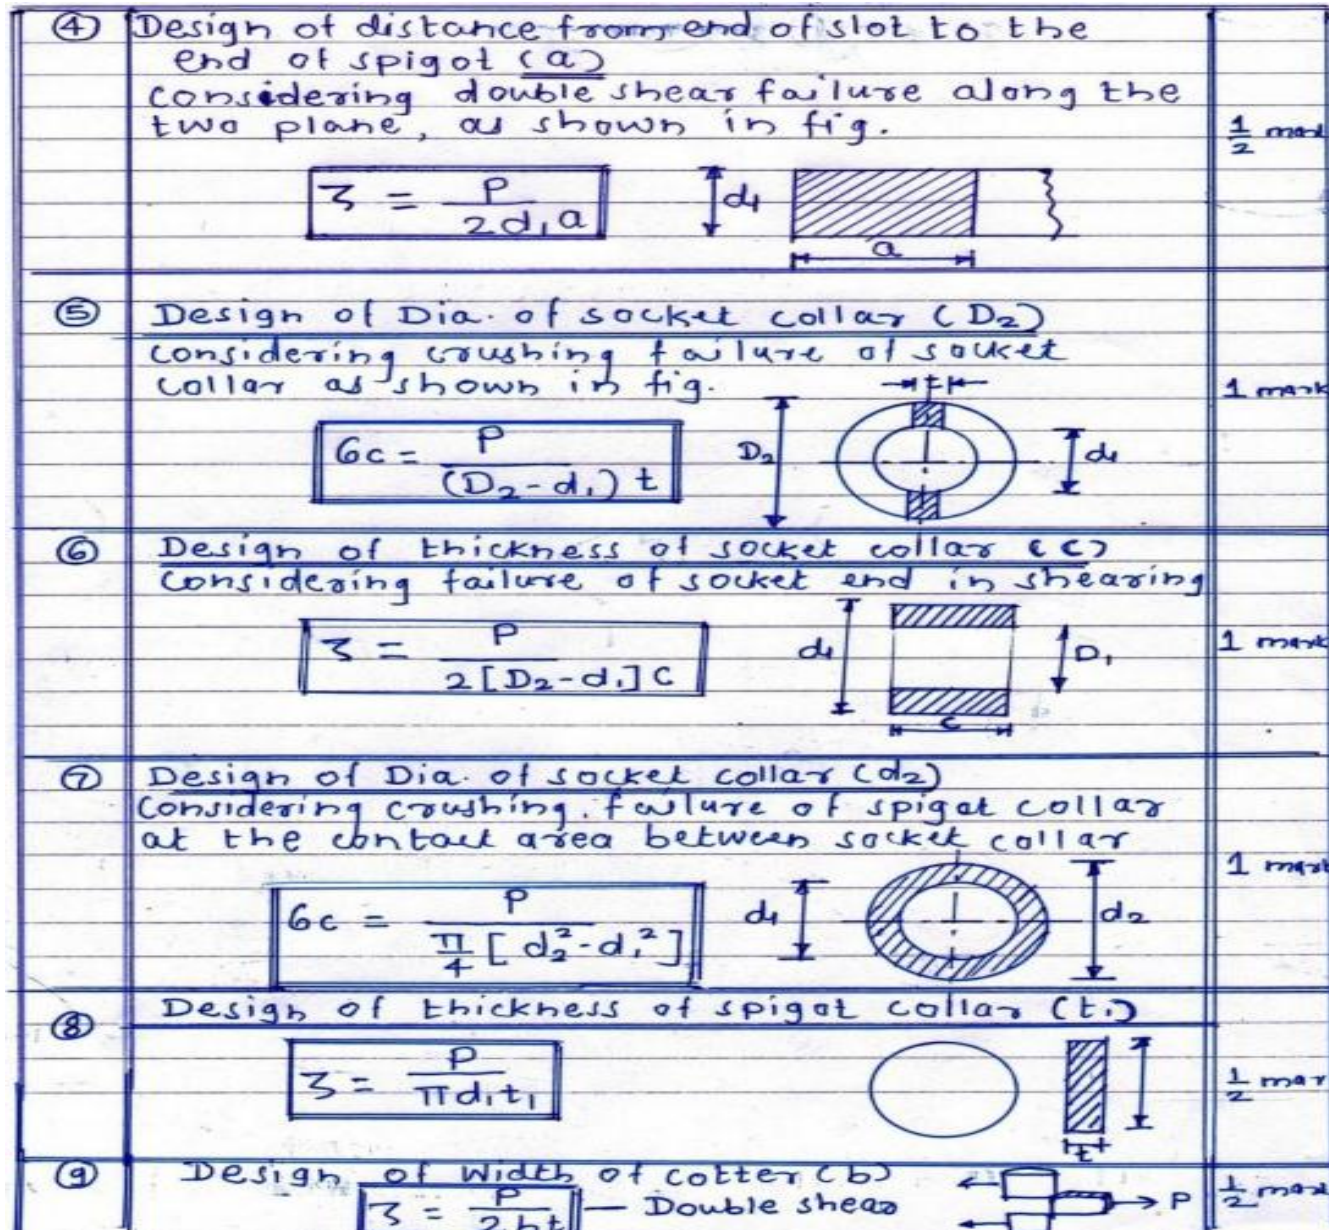 ④ Design of distance from end of slot to the
end of spigot (a)
considering double shear failure along the
two plane, as shown in fig.
1/2 mark
τ = P / 2d₁a
d₁
a
⑤ Design of Dia. of socket collar (D₂)
considering crushing failure of socket
collar as shown in fig.
1 mark
t
σc = P / (D₂-d₁) t
D₂
d₁
⑥ Design of thickness of socket collar (c)
considering failure of socket end in shearing
1 mark
τ = P / 2[D₂-d₁] c
d₁
D₁
c
⑦ Design of Dia. of socket collar (d₂)
considering crushing failure of spigot collar
at the contact area between socket collar
1 mark
σc = P / π/4 [d₂²-d₁²]
d₁
d₂
⑧ Design of thickness of spigot collar (t₁)
τ = P / πd₁t₁
t
1/2 mar
⑨ Design of width of cotter (b)
τ = P / 2bt — Double shear
P
1/2 mark